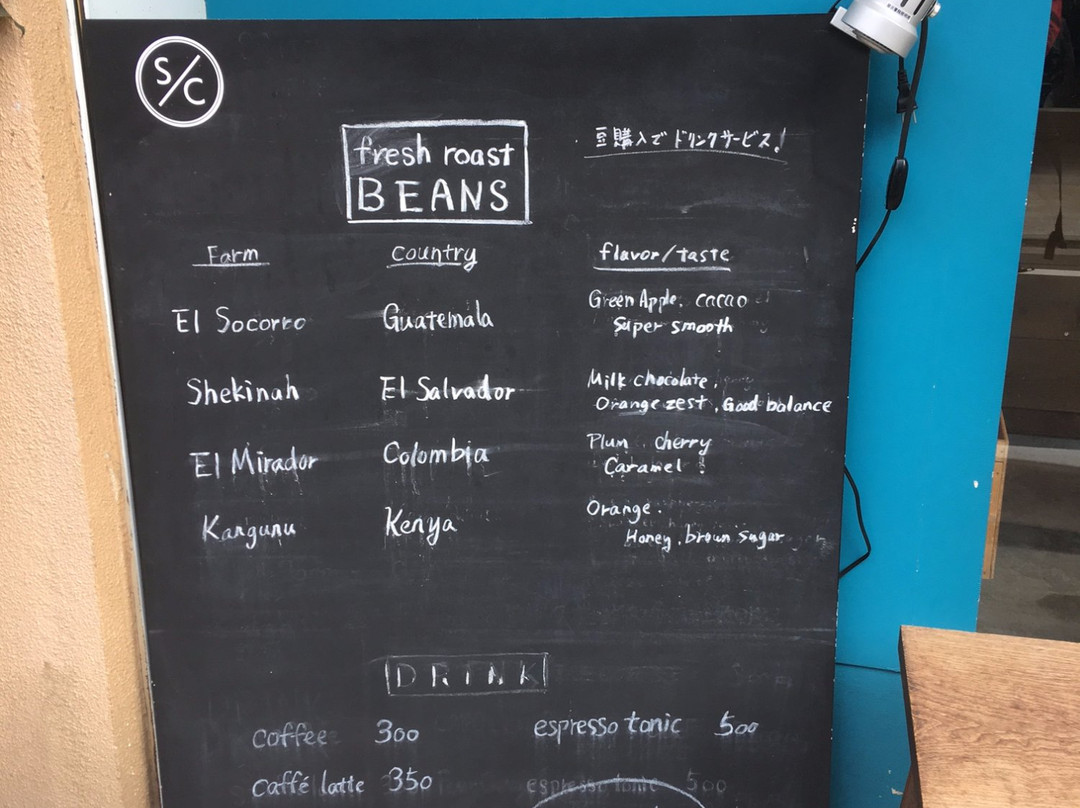 S/C
fresh roast
BEANS
豆購入でドリンクサービス!
Farm country flavor/taste
El Socorro Guatemala Green Apple. cacao
Super smooth
Shekinah El Salvador Milk chocolate,
Orange zest, Good balance
El Mirador Colombia Plum, cherry
Caramel!
Kangunu Kenya Orange.
Honey, brown sugar
DRINK
coffee 300 espresso tonic 500
caffé latte 350 espresso tonic 500